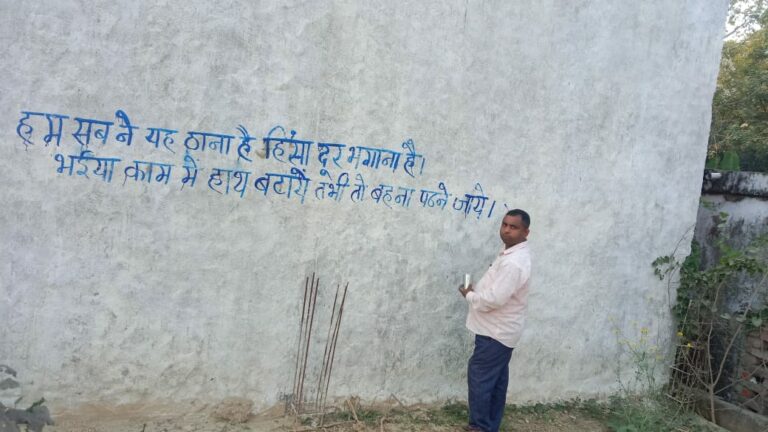 हम सब ने यह ठाना है हिंसा दूर भगाना है।
भईया काम में हाथ बटाये तभी तो बहना पढने जाये।